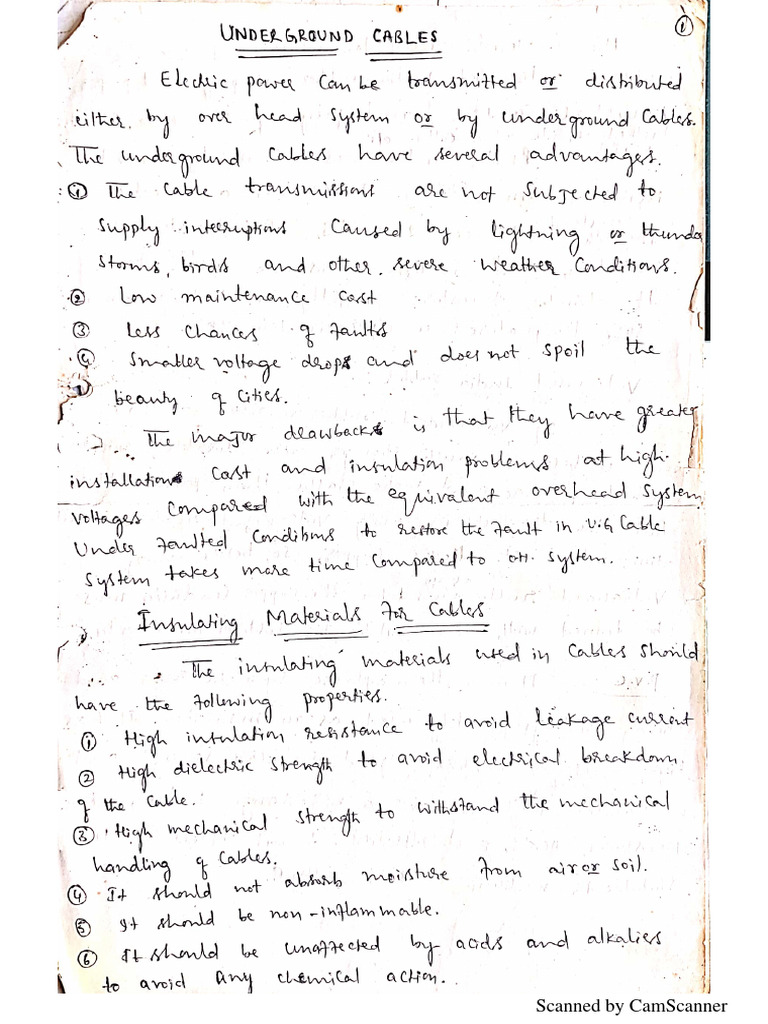 ①
UNDERGROUND CABLES
Electric power can be transmitted or distributed
either by over head system or by underground cables.
The underground cables have several advantages.
① The cable transmissions are not subjected to
supply interruptions caused by lightning or thunder
storms, birds and other severe weather conditions.
② Low maintenance cost
③ Less chances of faults
④ Smaller voltage drops and does not spoil the
beauty of cities.
The major drawbacks is that they have greater
installations cost and insulation problems at high
voltages compared with the equivalent overhead system
Under faulted conditions to restore the fault in U.G Cable
system takes more time compared to OH. system.
Insulating Materials For Cables
The insulating materials used in cables should
have the following properties.
① High insulation resistance to avoid leakage current
② High dielectric strength to avoid electrical breakdown
of the cable.
③ High mechanical strength to withstand the mechanical
handling of cables.
④ It should not absorb moisture from air or soil.
⑤ It should be non-inflammable.
⑥ It should be unaffected by acids and alkalies
to avoid any chemical action.
Scanned by CamScanner